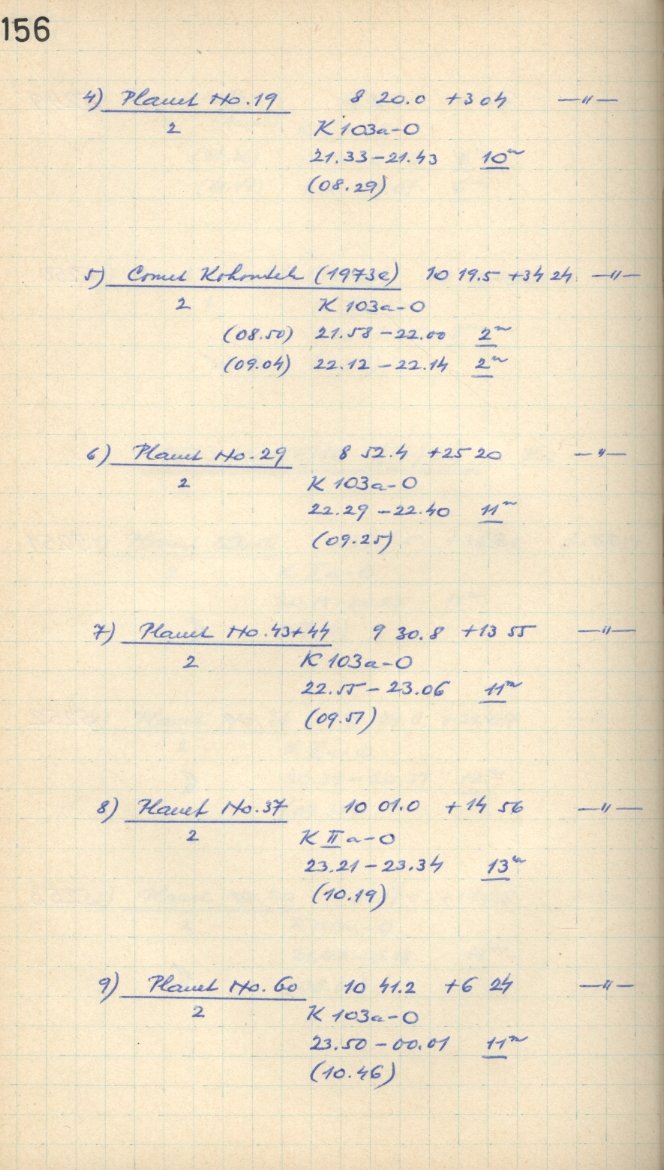 156
4) Planet No. 19 8 20.0 +3 04 —"—
2 K 103a-O
21.33-21.43 10ᵐ
(08.29)
5) Comet Kohoutek (1973e) 10 19.5 +34 24 —"—
2 K 103a-O
(08.50) 21.58-22.00 2ᵐ
(09.04) 22.12-22.14 2ᵐ
6) Planet No. 29 8 52.4 +25 20 —"—
2 K 103a-O
22.29-22.40 11ᵐ
(09.25)
7) Planet No. 43+44 9 30.8 +13 55 —"—
2 K 103a-O
22.55-23.06 11ᵐ
(09.51)
8) Planet No. 37 10 01.0 +14 56 —"—
2 K II a-O
23.21-23.34 13ᵐ
(10.19)
9) Planet No. 60 10 41.2 +6 24 —"—
2 K 103a-O
23.50-00.01 11ᵐ
(10.46)